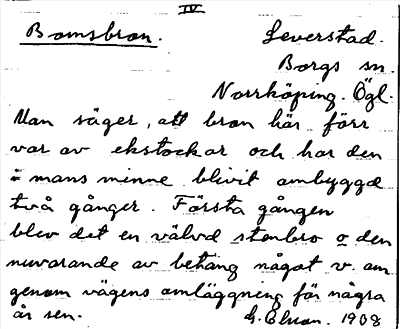 IV
Bomsbron. Leverstad.
Borgs sn.
Norrköping. Ögl.
Man säger, att bron här förr
var av ekstockar och har den
i mans minne blivit ombyggd
två gånger. Första gången
blev det en välvd stenbro o den
nuvarande av betong något v. om
genom vägens omläggning för några
år sen. 1908